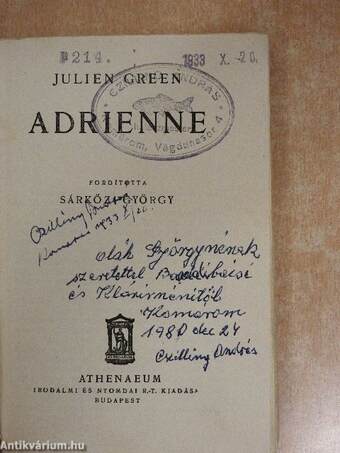 №214. 1933 X. 20.
JULIEN GREEN
CZILLING ANDRÁS
Komárom, Vágdunasor 4
ADRIENNE
FORDÍTOTTA
SÁRKÖZI GYÖRGY
Czilling
Komárno 1933 X/20.
Oláh Györgynének
szeretettel
és Klárinénitől
Komárom
1980 dec 24
Czilling András
ATHENAEUM
IRODALMI ÉS NYOMDAI R.-T. KIADÁSA
BUDAPEST
Antikvárium.hu